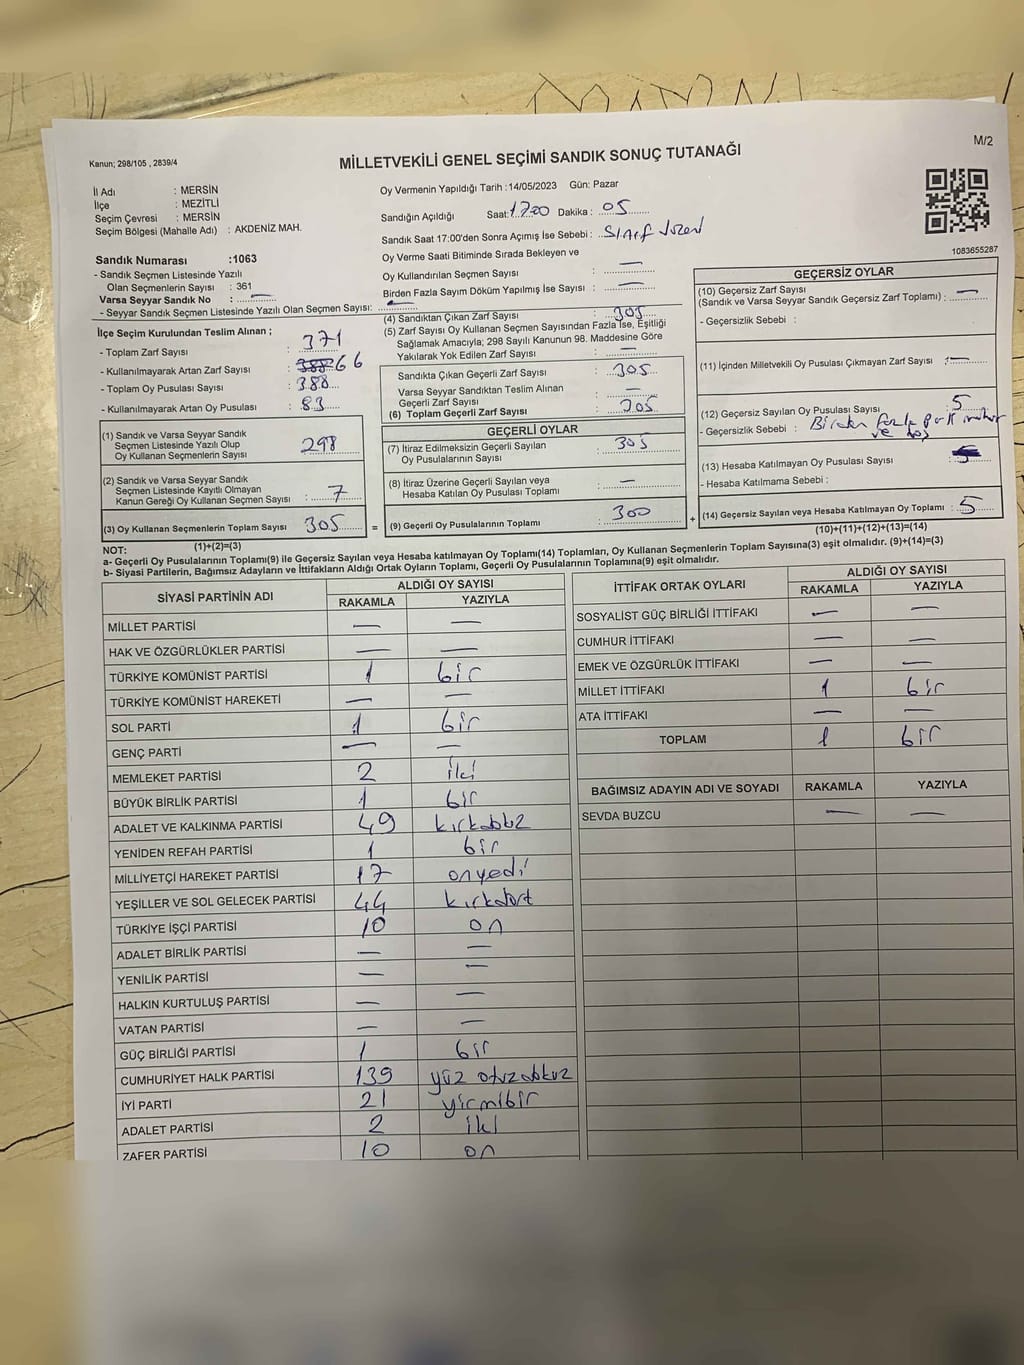 Kanun; 298/105 , 2839/4
MİLLETVEKİLİ GENEL SEÇİMİ SANDIK SONUÇ TUTANAĞI
M/2
İl Adı : MERSİN
İlçe : MEZİTLİ
Seçim Çevresi : MERSİN
Seçim Bölgesi (Mahalle Adı) : AKDENİZ MAH.
Oy Vermenin Yapıldığı Tarih :14/05/2023 Gün: Pazar
Sandığın Açıldığı Saat: 17:00 Dakika : 05
Sandık Saat 17:00'den Sonra Açımış İse Sebebi : Sınıf
Oy Verme Saati Bitiminde Sırada Bekleyen ve
Oy Kullandırılan Seçmen Sayısı : —
Birden Fazla Sayım Döküm Yapılmış İse Sayısı : —
1083655287
Sandık Numarası :1063
- Sandık Seçmen Listesinde Yazılı
Olan Seçmenlerin Sayısı : 361
Varsa Seyyar Sandık No : —
- Seyyar Sandık Seçmen Listesinde Yazılı Olan Seçmen Sayısı:
İlçe Seçim Kurulundan Teslim Alınan ;
- Toplam Zarf Sayısı : 371
- Kullanılmayarak Artan Zarf Sayısı : 66
- Toplam Oy Pusulası Sayısı : 388
- Kullanılmayarak Artan Oy Pusulası : 83
(1) Sandık ve Varsa Seyyar Sandık
Seçmen Listesinde Yazılı Olup
Oy Kullanan Seçmenlerin Sayısı : 298
(2) Sandık ve Varsa Seyyar Sandık
Seçmen Listesinde Kayıtlı Olmayan
Kanun Gereği Oy Kullanan Seçmen Sayısı : 7
(3) Oy Kullanan Seçmenlerin Toplam Sayısı 305 =
(1)+(2)=(3)
(4) Sandıktan Çıkan Zarf Sayısı : 305
(5) Zarf Sayısı Oy Kullanan Seçmen Sayısından Fazla İse, Eşitliği
Sağlamak Amacıyla; 298 Sayılı Kanunun 98. Maddesine Göre
Yakılarak Yok Edilen Zarf Sayısı : —
Sandıkta Çıkan Geçerli Zarf Sayısı : 305
Varsa Seyyar Sandıktan Teslim Alınan
Geçerli Zarf Sayısı : —
(6) Toplam Geçerli Zarf Sayısı : 305
GEÇERLİ OYLAR
(7) İtiraz Edilmeksizin Geçerli Sayılan
Oy Pusulalarının Sayısı : 305
(8) İtiraz Üzerine Geçerli Sayılan veya
Hesaba Katılan Oy Pusulası Toplamı : —
(9) Geçerli Oy Pusulalarının Toplamı : 300 +
GEÇERSİZ OYLAR
(10) Geçersiz Zarf Sayısı
(Sandık ve Varsa Seyyar Sandık Geçersiz Zarf Toplamı) : —
- Geçersizlik Sebebi :
(11) İçinden Milletvekili Oy Pusulası Çıkmayan Zarf Sayısı : —
(12) Geçersiz Sayılan Oy Pusulası Sayısı : 5
- Geçersizlik Sebebi : Birden fazla parti mühür
ve boş
(13) Hesaba Katılmayan Oy Pusulası Sayısı :
- Hesaba Katılmama Sebebi :
(14) Geçersiz Sayılan veya Hesaba Katılmayan Oy Toplamı : 5
(10)+(11)+(12)+(13)=(14)
NOT:
a- Geçerli Oy Pusulalarının Toplamı(9) ile Geçersiz Sayılan veya Hesaba katılmayan Oy Toplamı(14) Toplamları, Oy Kullanan Seçmenlerin Toplam Sayısına(3) eşit olmalıdır. (9)+(14)=(3)
b- Siyasi Partilerin, Bağımsız Adayların ve İttifakların Aldığı Ortak Oyların Toplamı, Geçerli Oy Pusulalarının Toplamına(9) eşit olmalıdır.
SİYASİ PARTİNİN ADI ALDIĞI OY SAYISI
RAKAMLA YAZIYLA
MİLLET PARTİSİ — —
HAK VE ÖZGÜRLÜKLER PARTİSİ — —
TÜRKİYE KOMÜNİST PARTİSİ 1 bir
TÜRKİYE KOMÜNİST HAREKETİ — —
SOL PARTİ 1 bir
GENÇ PARTİ — —
MEMLEKET PARTİSİ 2 iki
BÜYÜK BİRLİK PARTİSİ 1 bir
ADALET VE KALKINMA PARTİSİ 49 kırkdokuz
YENİDEN REFAH PARTİSİ 1 bir
MİLLİYETÇİ HAREKET PARTİSİ 17 onyedi
YEŞİLLER VE SOL GELECEK PARTİSİ 44 kırkdört
TÜRKİYE İŞÇİ PARTİSİ 10 on
ADALET BİRLİK PARTİSİ — —
YENİLİK PARTİSİ — —
HALKIN KURTULUŞ PARTİSİ — —
VATAN PARTİSİ — —
GÜÇ BİRLİĞİ PARTİSİ 1 bir
CUMHURİYET HALK PARTİSİ 139 yüz otuzdokuz
İYİ PARTİ 21 yirmibir
ADALET PARTİSİ 2 iki
ZAFER PARTİSİ 10 on
İTTİFAK ORTAK OYLARI ALDIĞI OY SAYISI
RAKAMLA YAZIYLA
SOSYALİST GÜÇ BİRLİĞİ İTTİFAKI — —
CUMHUR İTTİFAKI — —
EMEK VE ÖZGÜRLÜK İTTİFAKI — —
MİLLET İTTİFAKI 1 bir
ATA İTTİFAKI — —
TOPLAM 1 bir
BAĞIMSIZ ADAYIN ADI VE SOYADI RAKAMLA YAZIYLA
SEVDA BUZCU — —